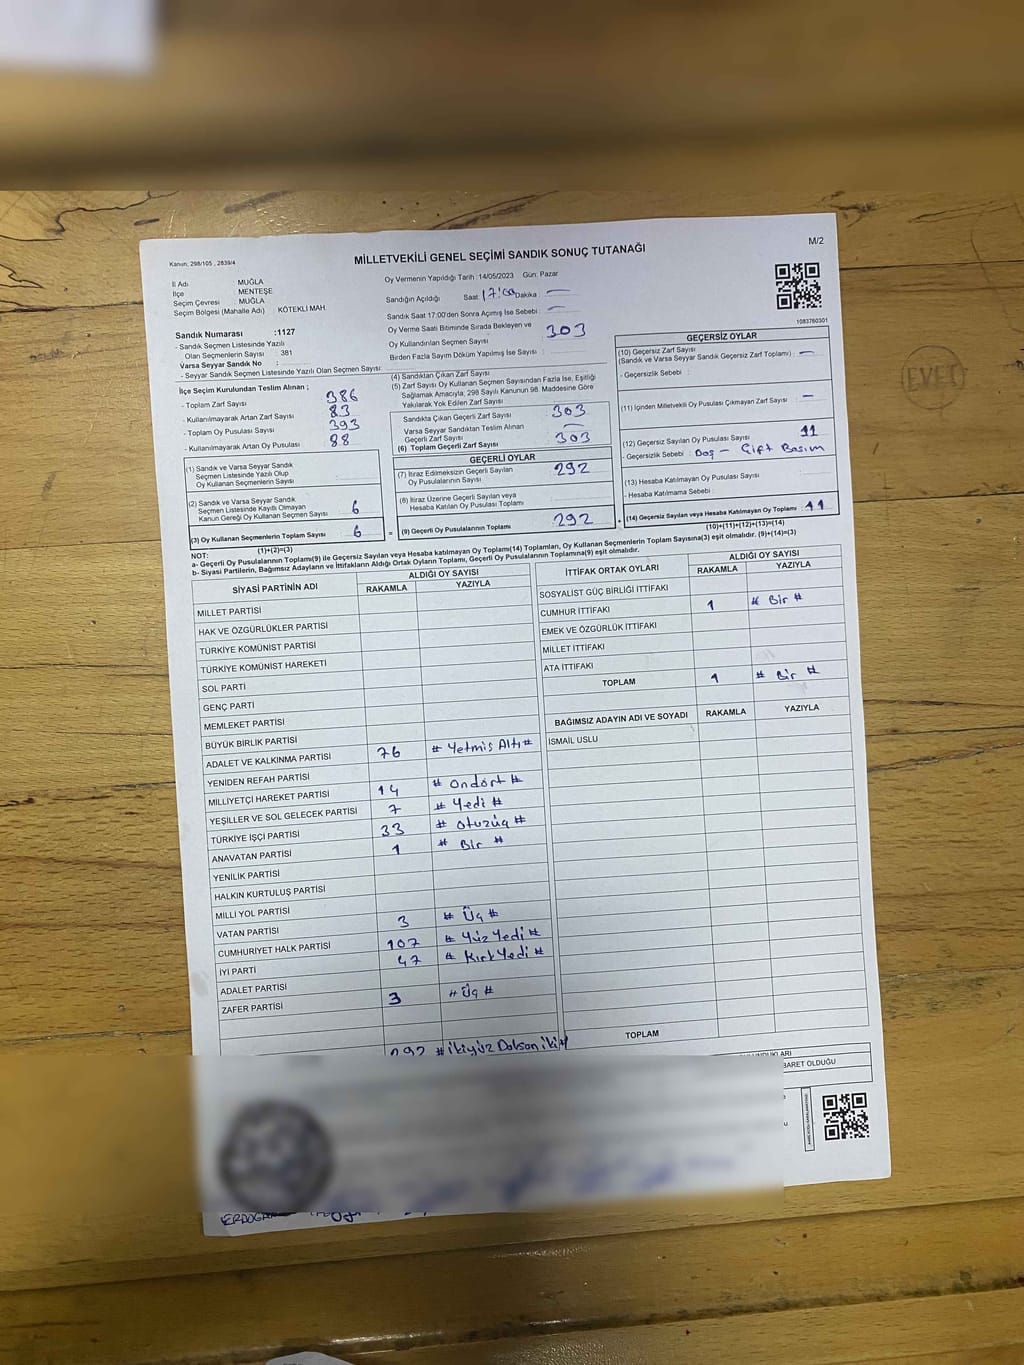 Kanun; 298/105 , 2839/4
MİLLETVEKİLİ GENEL SEÇİMİ SANDIK SONUÇ TUTANAĞI
M/2
İl Adı : MUĞLA
İlçe : MENTEŞE
Seçim Çevresi : MUĞLA
Seçim Bölgesi (Mahalle Adı) : KÖTEKLİ MAH
Sandık Numarası :1127
- Sandık Seçmen Listesinde Yazılı
Olan Seçmenlerin Sayısı : 381
Varsa Seyyar Sandık No :
- Seyyar Sandık Seçmen Listesinde Yazılı Olan Seçmen Sayısı:
Oy Vermenin Yapıldığı Tarih :14/05/2023 Gün: Pazar
Sandığın Açıldığı Saat: 17:00 Dakika : —
Sandık Saat 17:00'den Sonra Açımış İse Sebebi : —
Oy Verme Saati Bitiminde Sırada Bekleyen ve
Oy Kullandırılan Seçmen Sayısı : 303
Birden Fazla Sayım Döküm Yapılmış İse Sayısı :
1083760301
İlçe Seçim Kurulundan Teslim Alınan ;
- Toplam Zarf Sayısı : 386
- Kullanılmayarak Artan Zarf Sayısı : 83
- Toplam Oy Pusulası Sayısı : 393
- Kullanılmayarak Artan Oy Pusulası : 88
(1) Sandık ve Varsa Seyyar Sandık
Seçmen Listesinde Yazılı Olup
Oy Kullanan Seçmenlerin Sayısı :
(2) Sandık ve Varsa Seyyar Sandık
Seçmen Listesinde Kayıtlı Olmayan
Kanun Gereği Oy Kullanan Seçmen Sayısı : 6
(3) Oy Kullanan Seçmenlerin Toplam Sayısı : 6
(1)+(2)=(3)
(4) Sandıktan Çıkan Zarf Sayısı :
(5) Zarf Sayısı Oy Kullanan Seçmen Sayısından Fazla İse, Eşitliği
Sağlamak Amacıyla, 298 Sayılı Kanunun 98. Maddesine Göre
Yakılarak Yok Edilen Zarf Sayısı :
Sandıkta Çıkan Geçerli Zarf Sayısı : 303
Varsa Seyyar Sandıktan Teslim Alınan
Geçerli Zarf Sayısı : —
(6) Toplam Geçerli Zarf Sayısı : 303
GEÇERLİ OYLAR
(7) İtiraz Edilmeksizin Geçerli Sayılan
Oy Pusulalarının Sayısı : 292
(8) İtiraz Üzerine Geçerli Sayılan veya
Hesaba Katılan Oy Pusulası Toplamı :
= (9) Geçerli Oy Pusulalarının Toplamı : 292
GEÇERSİZ OYLAR
(10) Geçersiz Zarf Sayısı
(Sandık ve Varsa Seyyar Sandık Geçersiz Zarf Toplamı) : —
- Geçersizlik Sebebi :
(11) İçinden Milletvekili Oy Pusulası Çıkmayan Zarf Sayısı : —
(12) Geçersiz Sayılan Oy Pusulası Sayısı : 11
- Geçersizlik Sebebi : Boş - Çift Basım
(13) Hesaba Katılmayan Oy Pusulası Sayısı :
- Hesaba Katılmama Sebebi :
+ (14) Geçersiz Sayılan veya Hesaba Katılmayan Oy Toplamı : 11
(10)+(11)+(12)+(13)=(14)
NOT:
a- Geçerli Oy Pusulalarının Toplamı(9) ile Geçersiz Sayılan veya Hesaba katılmayan Oy Toplamı(14) Toplamları, Oy Kullanan Seçmenlerin Toplam Sayısına(3) eşit olmalıdır. (9)+(14)=(3)
b- Siyasi Partilerin, Bağımsız Adayların ve İttifakların Aldığı Ortak Oyların Toplamı, Geçerli Oy Pusulalarının Toplamına(9) eşit olmalıdır.
SİYASİ PARTİNİN ADI ALDIĞI OY SAYISI
RAKAMLA YAZIYLA
MİLLET PARTİSİ
HAK VE ÖZGÜRLÜKLER PARTİSİ
TÜRKİYE KOMÜNİST PARTİSİ
TÜRKİYE KOMÜNİST HAREKETİ
SOL PARTİ
GENÇ PARTİ
MEMLEKET PARTİSİ
BÜYÜK BİRLİK PARTİSİ
ADALET VE KALKINMA PARTİSİ 76 # Yetmiş Altı #
YENİDEN REFAH PARTİSİ
MİLLİYETÇİ HAREKET PARTİSİ 14 # Ondört #
YEŞİLLER VE SOL GELECEK PARTİSİ 7 # Yedi #
TÜRKİYE İŞÇİ PARTİSİ 33 # Otuzüç #
ANAVATAN PARTİSİ 1 # Bir #
YENİLİK PARTİSİ
HALKIN KURTULUŞ PARTİSİ
MİLLİ YOL PARTİSİ
VATAN PARTİSİ 3 # Üç #
CUMHURİYET HALK PARTİSİ 107 # Yüz Yedi #
İYİ PARTİ 47 # Kırk Yedi #
ADALET PARTİSİ
ZAFER PARTİSİ 3 # Üç #
292 # İkiyüz Doksan iki #
İTTİFAK ORTAK OYLARI ALDIĞI OY SAYISI
RAKAMLA YAZIYLA
SOSYALİST GÜÇ BİRLİĞİ İTTİFAKI
CUMHUR İTTİFAKI 1 # Bir #
EMEK VE ÖZGÜRLÜK İTTİFAKI
MİLLET İTTİFAKI
ATA İTTİFAKI
TOPLAM 1 # Bir #
BAĞIMSIZ ADAYIN ADI VE SOYADI RAKAMLA YAZIYLA
İSMAİL USLU
TOPLAM
BARET OLDUĞU
ERDOĞAN
EVET